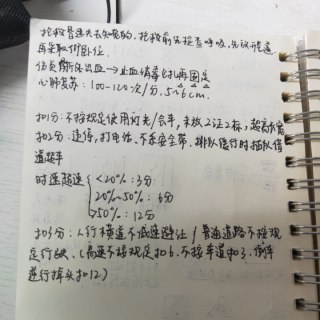 抢救昏迷失去知觉的,抢救前先检查呼吸,先议
再采取侧卧位
伤员骨折出血→止血绷带包扎再固定
心肺复苏:100-120次/分,5~6cm.
扣1分:不按规定使用灯光/会车,未放2证2标,
扣2分:违停,打电话、不系安全带、排队缓行时插队借
道超车
时速超速 <20%:3分
20%~50%:6分
>50%:12分
扣3分:人行横道不减速避让/普通道路不按规
定行驶、(高速不按规定扣6、不按车道扣3,倒车
逆行掉头扣12)